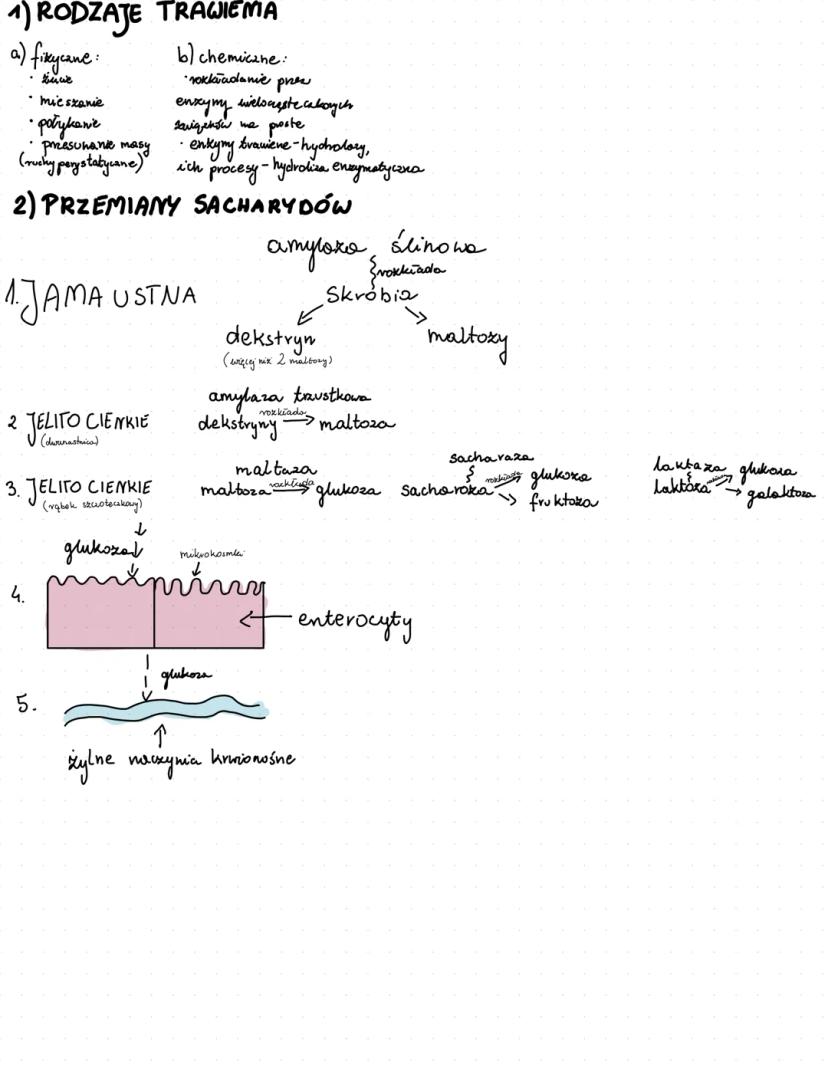 1) RODZAJE TRAWIENIA
a) fizyczne:
· żucie
· mieszanie
· połykanie
· przesuwanie masy
(ruchy perystatyczne)
b) chemiczne:
· rozkładanie przez
enzymy wielocząsteczkowych
związków na proste
· enzymy trawiene - hydrolazy,
ich procesy - hydroliza enzymatyczna
2) PRZEMIANY SACHARYDÓW
1. JAMA USTNA
amylaza ślinowa
rozkłada
Skrobia
dekstryn
(więcej niż 2 maltozy)
maltozy
2 JELITO CIENKIE
(dwunastnica)
amylaza trzustkowa
rozkłada
dekstryny → maltoza
3. JELITO CIENKIE
(rąbek szczoteczkowy)
maltaza
rozkłada
maltoza → glukoza
sacharaza
sacharoza rozkłada → glukoza
→ fruktoza
laktaza
laktoza → glukoza
→ galaktoza
glukoza
mikrokosmki
4.
enterocyty
glukoza
5.
żylne naczynia krwionośne